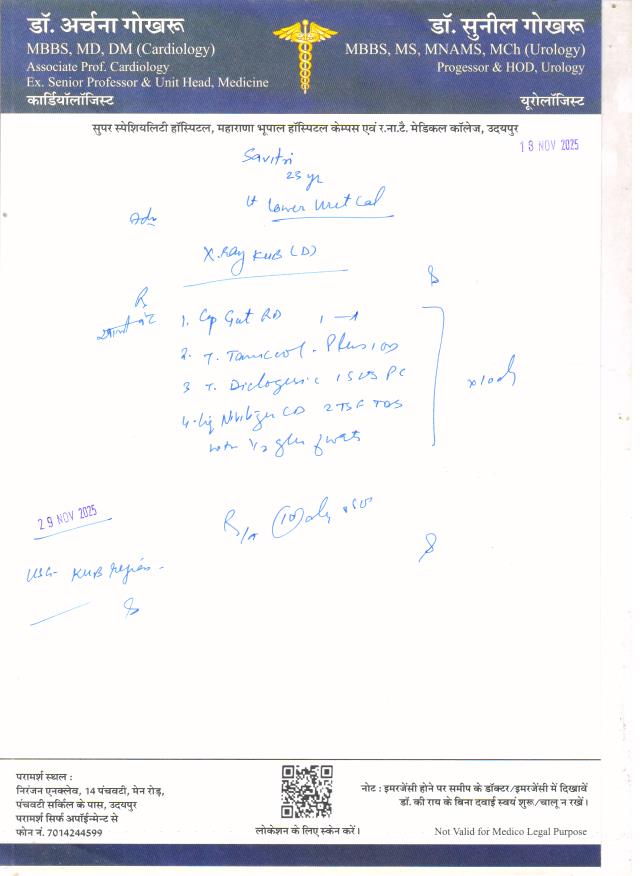 डॉ. अर्चना गोखरू
MBBS, MD, DM (Cardiology)
Associate Prof. Cardiology
Ex. Senior Professor & Unit Head, Medicine
कार्डियॉलॉजिस्ट
डॉ. सुनील गोखरू
MBBS, MS, MNAMS, MCh (Urology)
Progessor & HOD, Urology
यूरोलॉजिस्ट
सुपर स्पेशियलिटी हॉस्पिटल, महाराणा भूपाल हॉस्पिटल केम्पस एवं र.ना.टै. मेडिकल कॉलेज, उदयपुर
NOV 2025
Savitri
yr
Lt Lower Uret Cal
Adv
X.Ray KUB (D)
R
1. Cap RD
2. T.
3 T. PC
4. 2 TSF TDS
with 1/2 glass of water
29 NOV 2025
R/A (10) day
USG- KUB region -
परामर्श स्थल :
निरंजन एनक्लेव, 14 पंचवटी, मेन रोड़,
पंचवटी सर्किल के पास, उदयपुर
परामर्श सिर्फ अपॉईन्मेन्ट से
फोन नं. 7014244599
लोकेशन के लिए स्केन करें।
नोट : इमरजेंसी होने पर समीप के डॉक्टर/इमरजेंसी में दिखावें
डॉ. की राय के बिना दवाई स्वयं शुरू/चालू न रखें।
Not Valid for Medico Legal Purpose